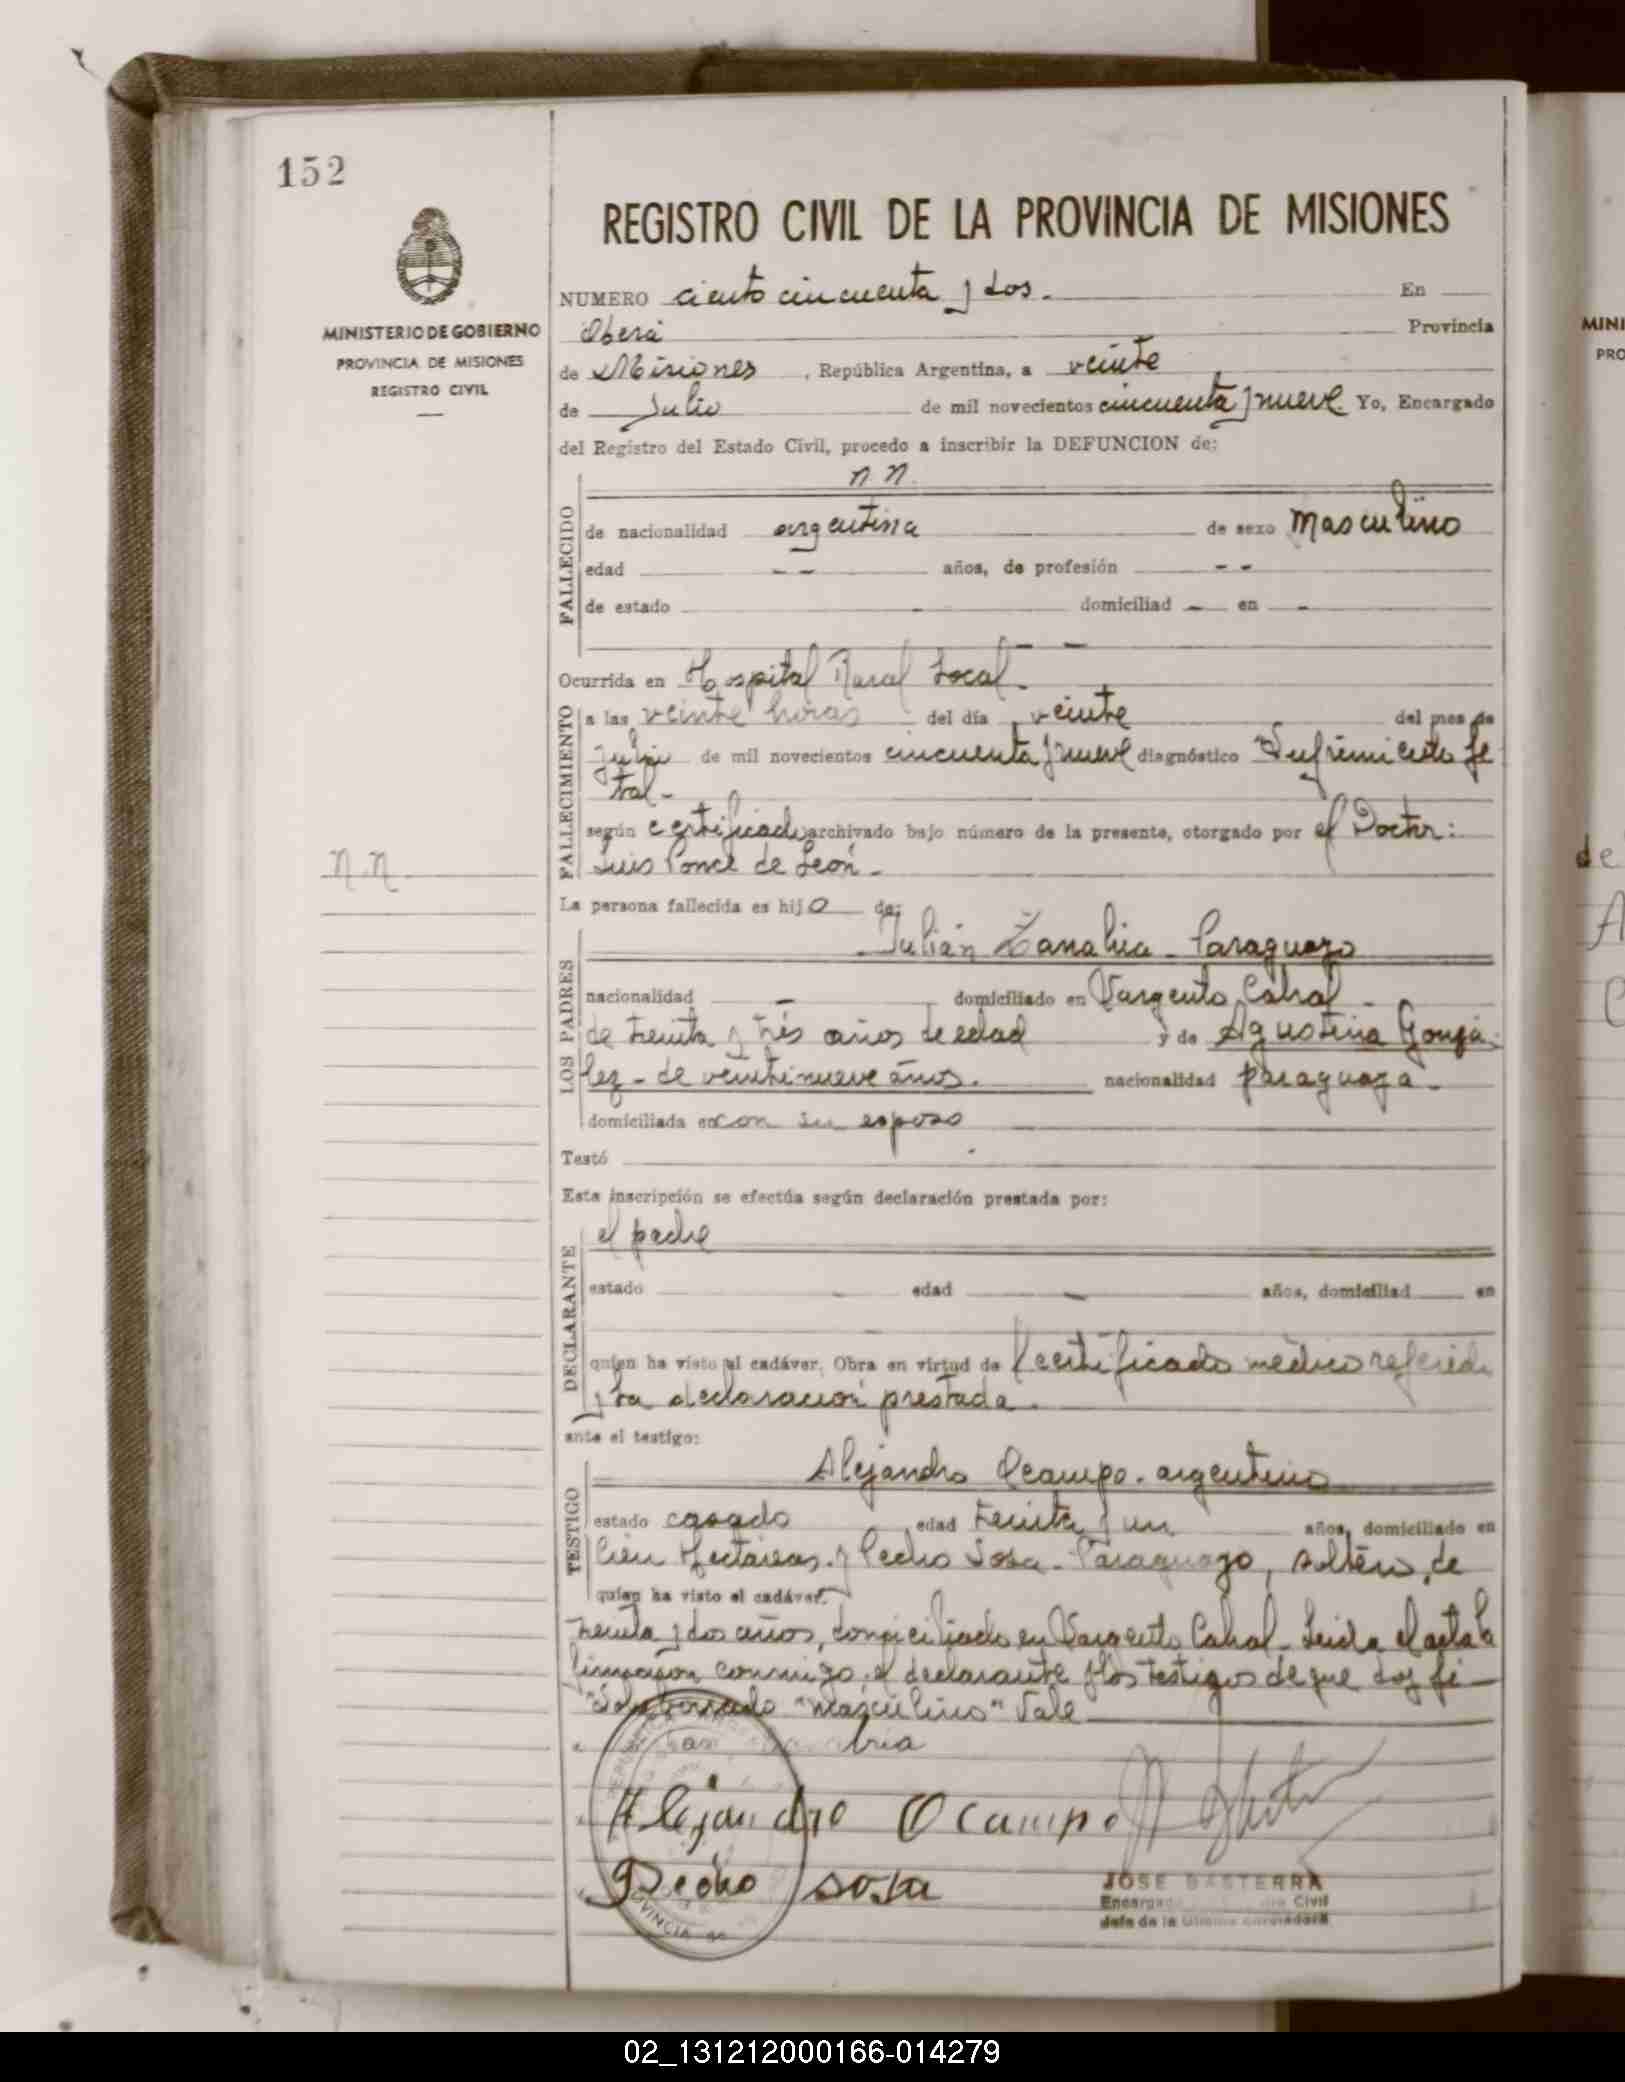 152
REGISTRO CIVIL DE LA PROVINCIA DE MISIONES
MINISTERIO DE GOBIERNO
PROVINCIA DE MISIONES
REGISTRO CIVIL
NUMERO ciento cincuenta y dos. En
Oberá Provincia
de Misiones, República Argentina, a veinte
de Julio de mil novecientos cincuenta y nueve. Yo, Encargado
del Registro del Estado Civil, procedo a inscribir la DEFUNCION de:
n. n.
FALLECIDO
de nacionalidad argentina de sexo Masculino
edad - - años, de profesión - -
de estado - domiciliad - en -
- -
Ocurrida en Hospital Rural Local -
FALLECIMIENTO
a las veinte horas del día veinte del mes de
Julio de mil novecientos cincuenta y nueve diagnóstico Sufrimiento fe
tal -
según certificado archivado bajo número de la presente, otorgado por el Doctor:
Luis Ponce de León -
n.n.
La persona fallecida es hijo de:
LOS PADRES
Julián Zanabria - Paraguayo
nacionalidad - domiciliado en Sargento Cabral -
de treinta y tres años de edad y de Agustina Gonzá-
lez - de veintinueve años. nacionalidad paraguaya -
domiciliada en con su esposo
Testó
Esta inscripción se efectúa según declaración prestada por:
DECLARANTE
el padre
estado - edad - años, domiciliad en
-
quien ha visto el cadáver. Obra en virtud de l certificado médico referido
y la declaración prestada.
ante el testigo:
TESTIGO
Alejandro Ocampo - argentino
estado casado edad treinta y un años, domiciliado en
Cien Hectáreas. y Pedro Sosa - Paraguayo, soltero, de
quien ha visto el cadáver.
treinta y dos años, domiciliado en Sargento Cabral - Leida el acta la
firmaron conmigo, el declarante y los testigos de que doy fé -
borrado "masculino" Vale
bria
Alejandro Ocampo
Pedro Sosa
JOSE BASTERRA
Civil
Jefe de la
02_131212000166-014279
MINI
PRO
de
A
C